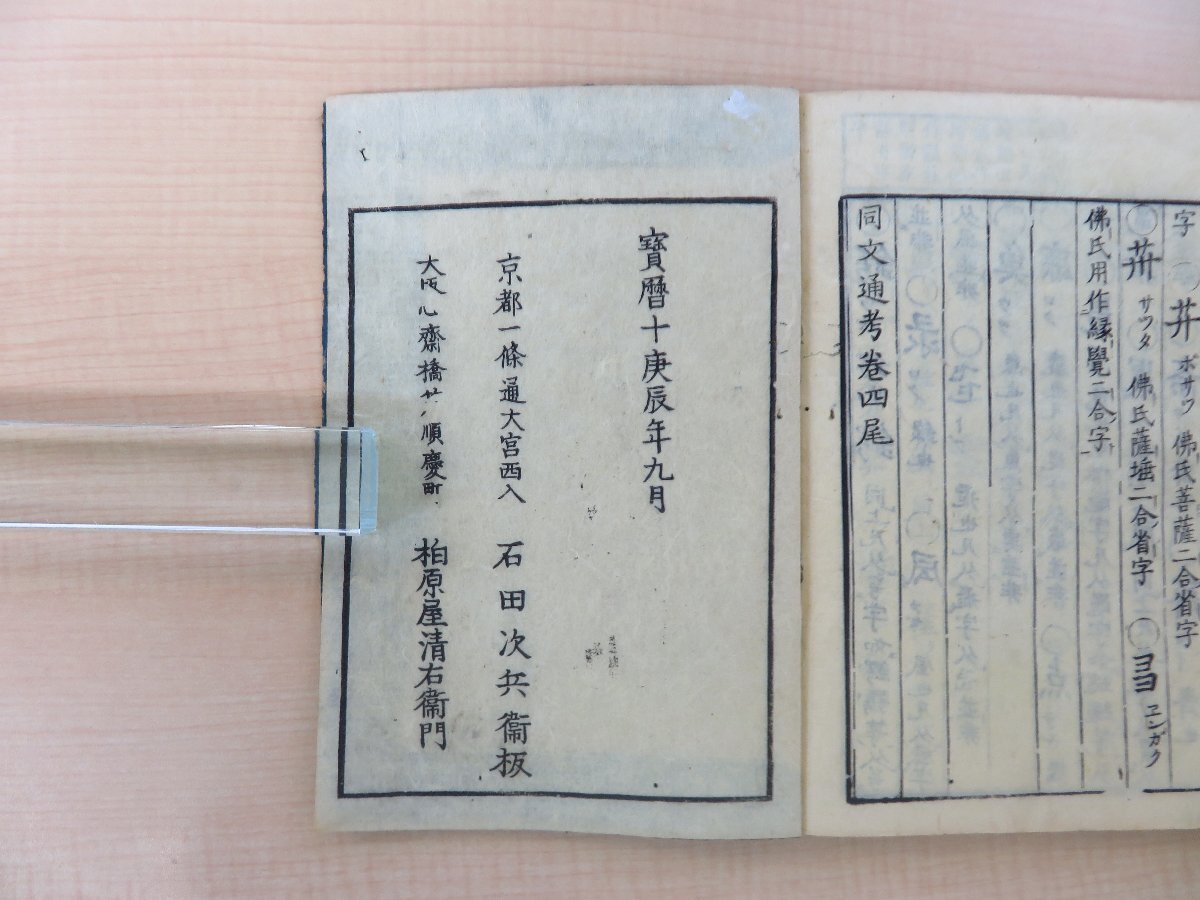 字 〇 𦬇 ホサツ 佛氏菩薩二合省字
〇 𦬠 サツタ 佛氏薩埵二合省字 〇 ヨヨ ヱンガク
佛氏用作縁覺二合字
同文通考卷四尾
寶曆十庚辰年九月
京都一條通大宮西入 石田次兵衞板
大阪心齋橋 順慶町 柏原屋清右衞門